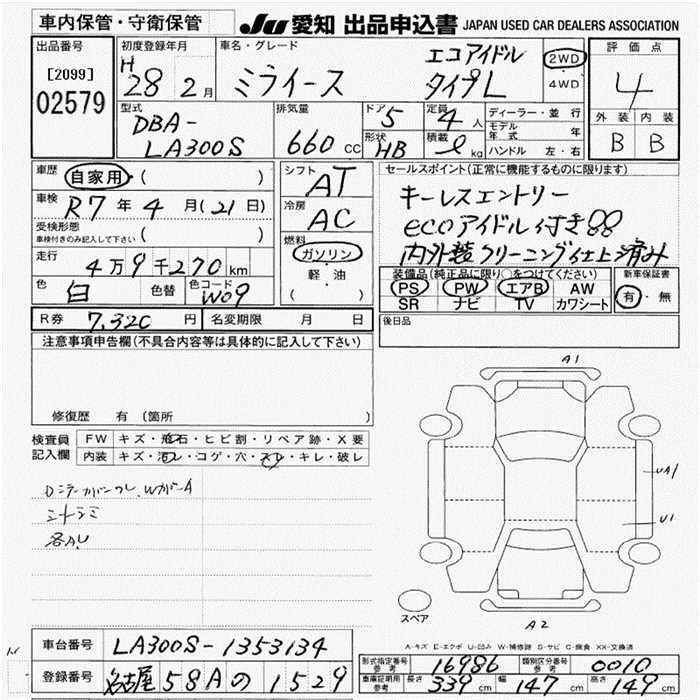 車内保管・守衛保管
JU 愛知 出品申込書 JAPAN USED CAR DEALERS ASSOCIATION
出品番号
[2099]
02579
初度登録年月
H 28 年 2 月
車名・グレード
ミライース エコアイドル タイプL
2WD
・
4WD
評価点
4
外装 内装
B B
型式
DBA-
LA300S
排気量
660 CC
ドア 5
形状 HB
定員 4 人
積載 kg
ディーラー・並行
モデル年式 年
ハンドル 左・右
車歴
自家用・( )
車検
R7 年 4 月(21日)
受検形態
車検付きのみ記入して下さい ( )
走行
4万9千270km
色 白 色替 色コード W09
R券 7,320 円 名変期限 月 日
シフト
AT
冷房
AC
燃料
ガソリン
・
軽・油
( )
セールスポイント(正常に機能するものに限ります)
キーレスエントリー
ecoアイドル付き
内外装クリーニング仕上済み
装備品(純正品に限り○をつけてください)
PS PW エアB AW
SR ナビ TV カワシート
新車保証書
有・無
後日品
注意事項申告欄(不具合内容等は具体的に記入して下さい)
修復歴 有 (箇所 )
検査員記入欄
FW キズ・飛石・ヒビ割・リペア跡・X要
内装 キズ・汚レ・コゲ・穴・スレ・キレ・破レ
シートシミ
A1
UA1
U1
A2
スペア
A-キズ E-エクボ U-凹み W-補修跡 S-サビ C-腐食 XX-交換済
車台番号 LA300S-1353134
登録番号 名古屋 58Aの 1529
形式指定番号 参考 16986 類別区分番号 参考 0010
車庫証明用 参考 長さ 339 cm 幅 147 cm 高さ 149 cm